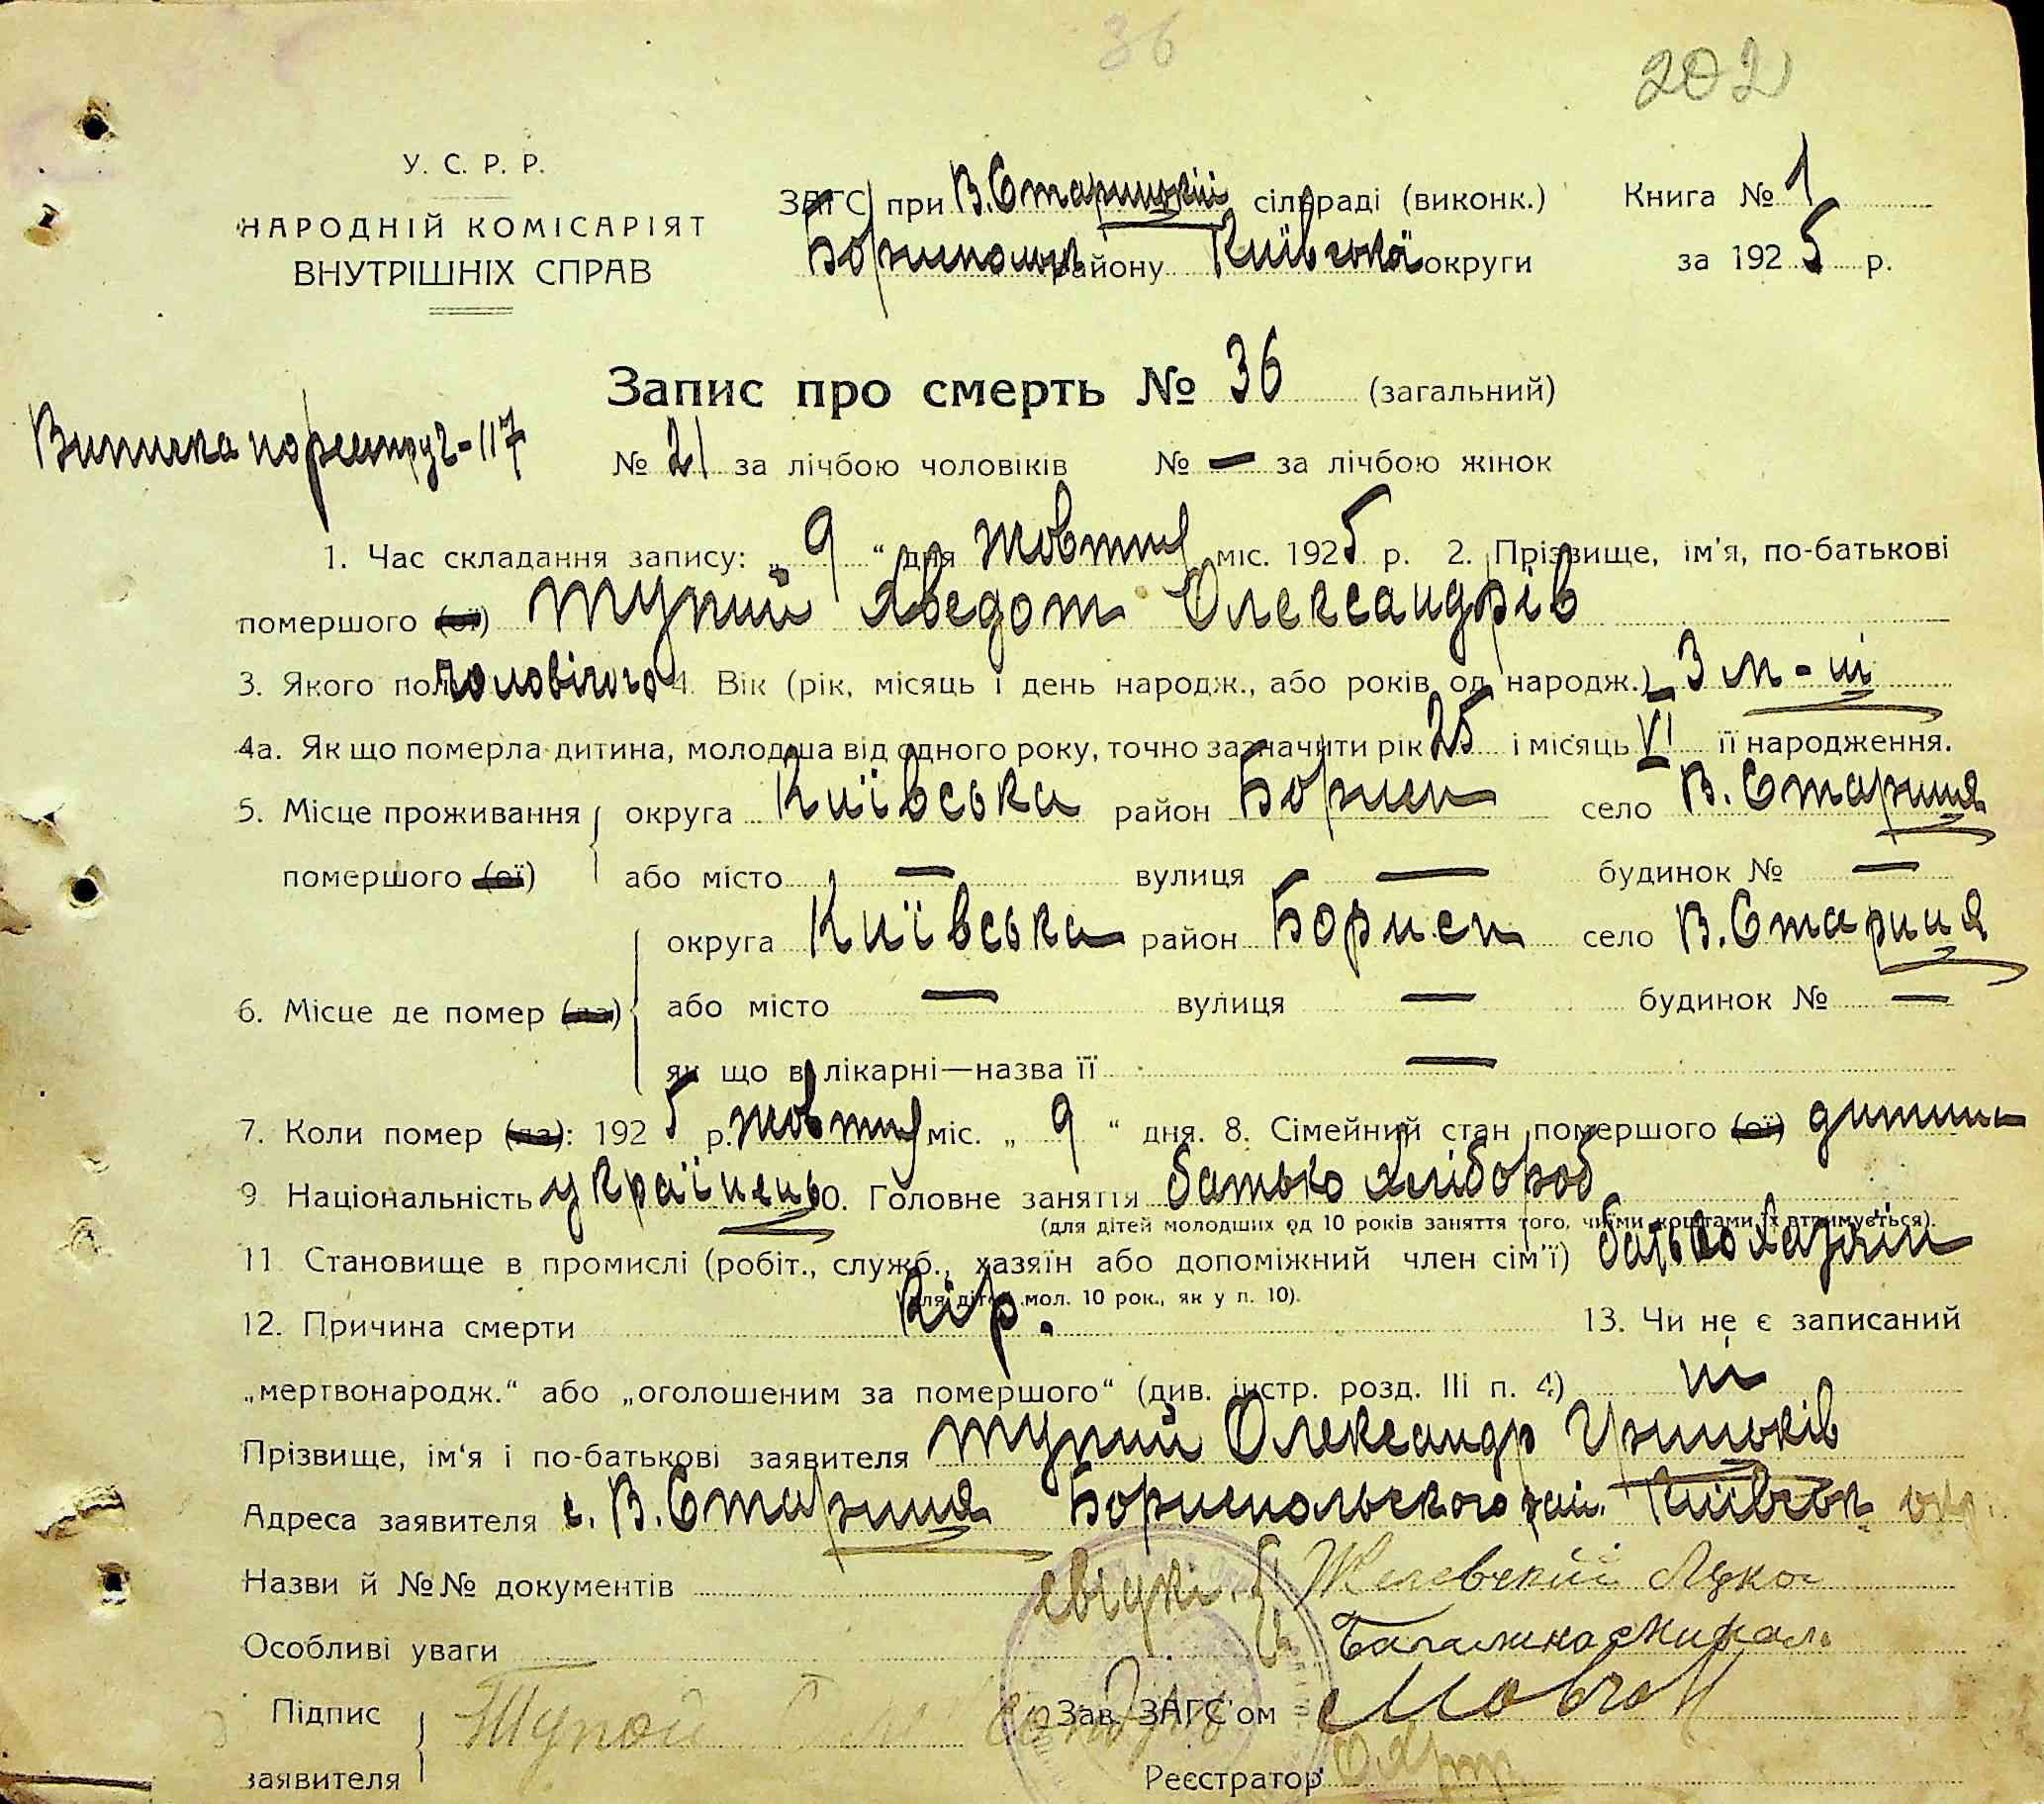 36
202
У. С. Р. Р.
НАРОДНІЙ КОМІСАРІЯТ
ВНУТРІШНІХ СПРАВ
ЗАГС при В. Старицкій сільраді (виконк.) Книга № 1
району Київська округи за 1925 р.
Запис про смерть № 36 (загальний)
Виписка по реестру 2-117
№ 21 за лічбою чоловіків № — за лічбою жінок
1. Час складання запису: „ 9 “ дня Жовтня міс. 1925 р. 2. Прізвище, ім'я, по-батькові
помершого (ої) Тупий Хведот Олександрів
3. Якого пол чоловічого 4. Вік (рік, місяць і день народж., або років од народж.) 3 м-ці
4а. Як що померла дитина, молодша від одного року, точно зазначити рік 25 і місяць VI її народження.
5. Місце проживання округа Київська район Борисп село В. Стариця
помершого (ої) або місто — вулиця — будинок № —
округа Київська район Борисп село В. Стариця
6. Місце де помер (ла) або місто — вулиця — будинок № —
як що в лікарні—назва її —
7. Коли помер (ла): 1925 р. Жовтня міс. „ 9 “ дня. 8. Сімейний стан помершого (ої) дитина
9. Національність українець 10. Головне заняття батько хлібороб
(для дітей молодших од 10 років заняття того, чиїми коштами їх втримується).
11 Становище в промислі (робіт., служб., хазяїн або допоміжний член сім'ї) батько хазяїн
(для дітей мол. 10 рок., як у п. 10).
12. Причина смерти Кір. 13. Чи не є записаний
„мертвонародж.“ або „оголошеним за помершого“ (див. інстр. розд. III п. 4) ні
Прізвище, ім'я і по-батькові заявителя Тупий Олександр Гриньків
Адреса заявителя с. В. Стариця Бориспольского рай. Київськ окр.
Назви й №№ документів свідкі.
Особливі уваги
Підпис Тупой Зав. ЗАГС'ом Мовчан
заявителя Реєстратор